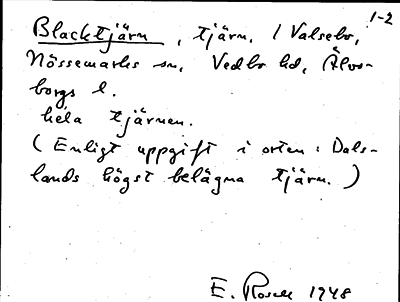 1-2
Blacktjärn, tjärn, / Valsebo,
Nössemarks sn, Vedbo hd, Älvs-
borgs l.
hela tjärnen.
(Enligt uppgift i orten: Dals-
lands högst belägna tjärn.)
E. Rosell 1948